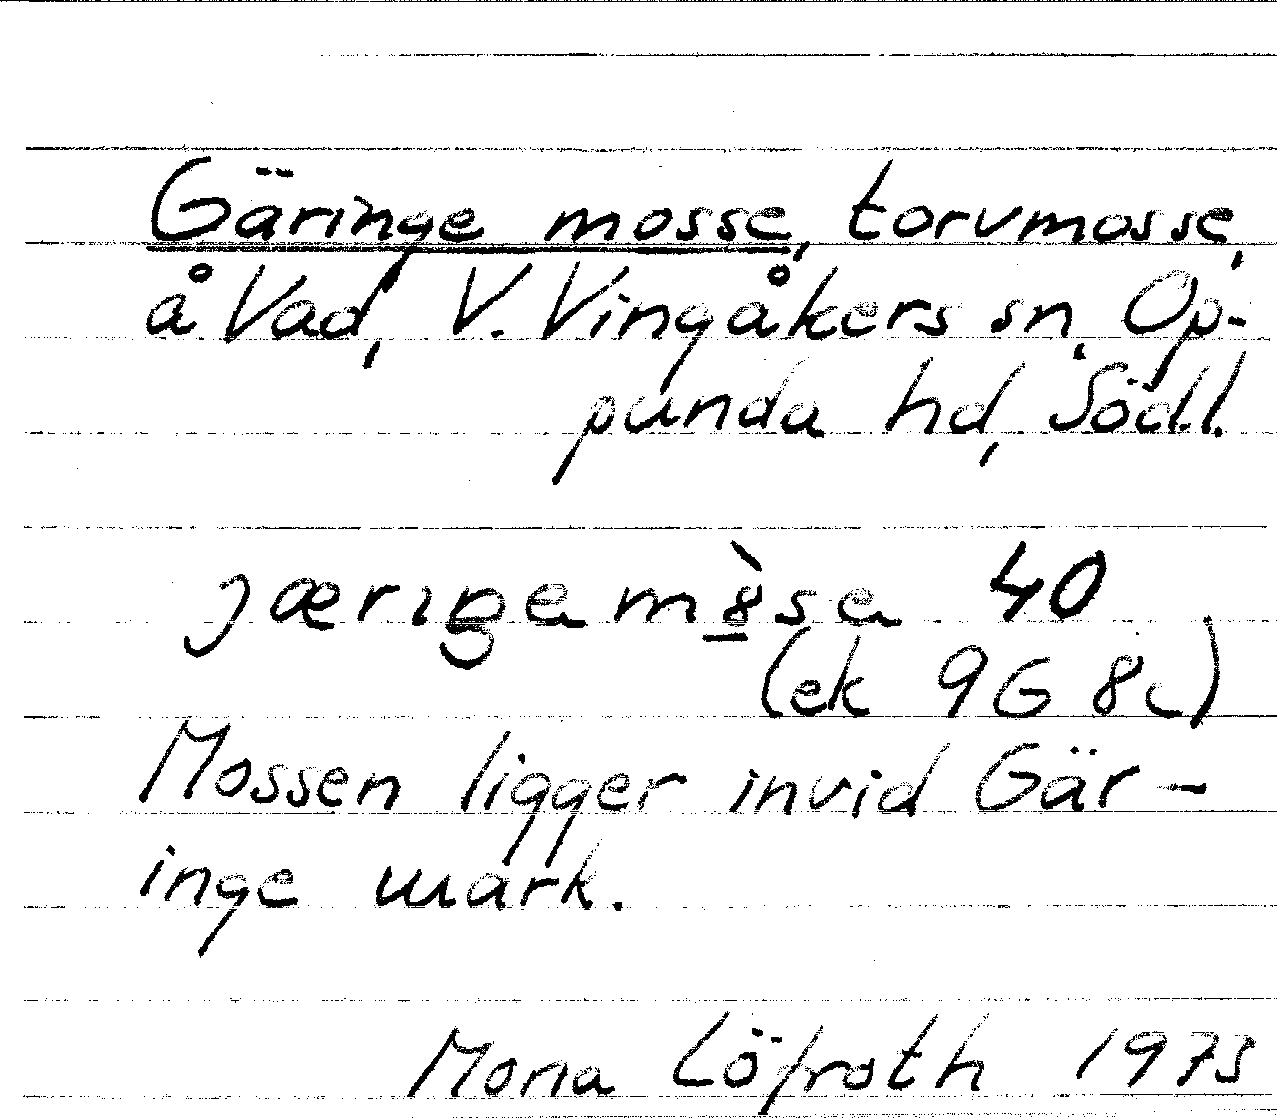 Gäringe mosse, torvmosse,
å Vad, V. Vingåkers sn, Op-
punda hd, Södl.
jæriŋem8̀sa 40
(ek 9G 8c)
Mossen ligger invid Gär-
inge mark.
Mona Löfroth 1973